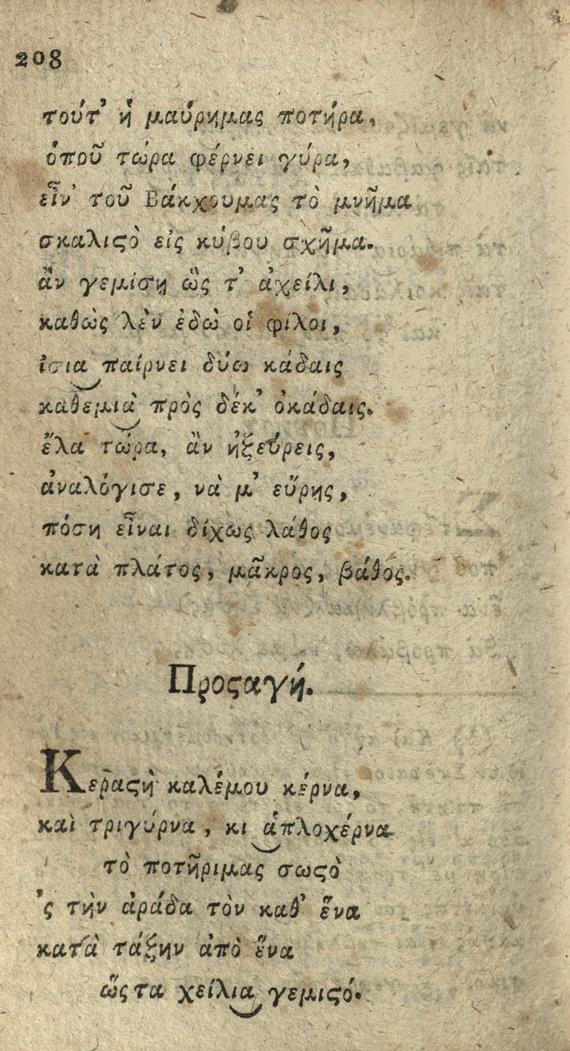 208
τούτ' ἡ μαύρημας ποτήρα,
ὁποῦ τώρα φέρνει γύρα,
εἶν' τοῦ Βάκχουμας τὸ μνῆμα
σκαλιϛὸ εἰς κύβου σχῆμα.
ἂν γεμίση ὣς τ' ἀχείλι,
καθὼς λὲν ἐδὼ οἱ φίλοι,
ἴσια παίρνει δύω κάδαις
καθεμιὰ πρὸς δέκ' ὀκάδαις.
ἔλα τώρα, ἂν ἠξεύρεις,
ἀναλόγισε, νὰ μ' εὕρης,
πόση εἶναι δίχως λάθος
κατὰ πλάτος, μᾶκρος, βάθος.
Προϛαγή.
Κεραϛὴ καλέμου κέρνα,
καὶ τριγύρνα, κι ἁπλοχέρνα
τὸ ποτῆριμας σωϛὸ
'ς τὴν ἀράδα τὸν καθ' ἕνα
κατὰ τάξην ἀπὸ ἕνα
ὥς τα χείλια γεμιϛό.